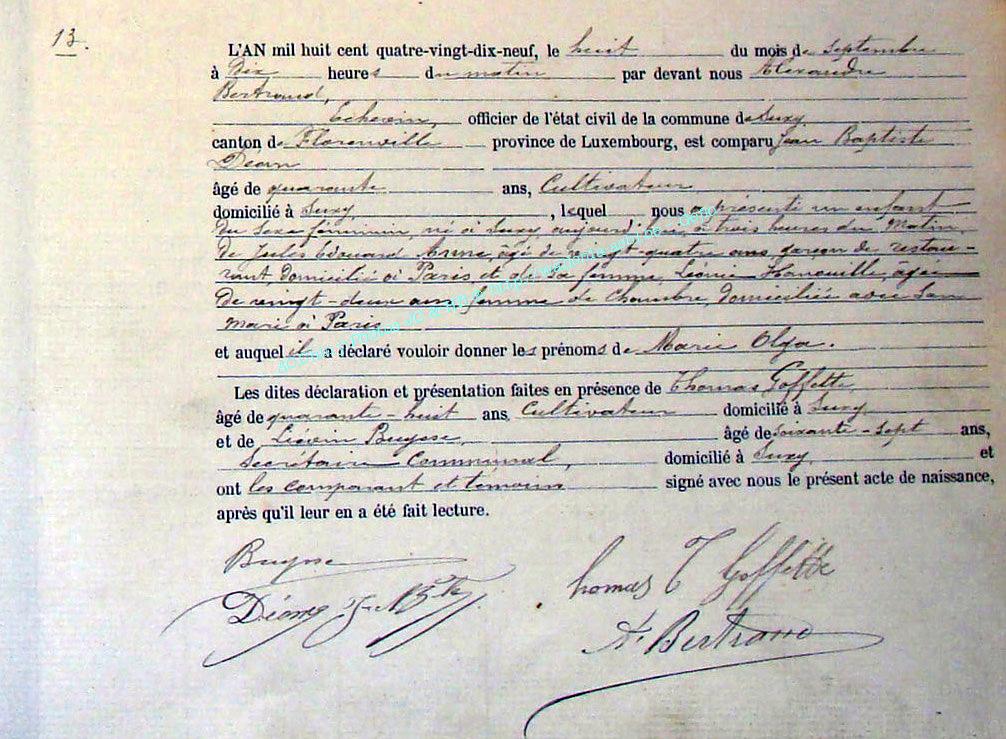 13.
L'AN mil huit cent quatre-vingt-dix-neuf, le huit du mois de Septembre
à Dix heures du matin par devant nous Alexandre
Bertrand,
Echevin, officier de l'état civil de la commune de Suxy
canton de Florenville province de Luxembourg, est comparu Jean Baptiste
âgé de quarante ans, Cultivateur
domicilié à Suxy, lequel nous a présenté un enfant
du Sexe féminin, né à Suxy, aujourd'hui à trois heures du Matin,
de Jules Edouard âgé de vingt-quatre ans garçon de restau-
rant, domicilié à Paris et de sa femme, Léonie âgée
de vingt-deux ans, femme de Chambre, domiciliée avec Son
mari à Paris
et auquel il a déclaré vouloir donner les prénoms de Marie Olga.
Les dites déclaration et présentation faites en présence de Thomas Goffette,
âgé de quarante-huit ans, Cultivateur domicilié à Suxy
et de Liévin Buysse, âgé de Soixante-Sept ans,
Secrétaire Communal, domicilié à Suxy, et
ont les comparant et témoins signé avec nous le présent acte de naissance,
après qu'il leur en a été fait lecture.
Buysse
Thomas Goffette
A. Bertrand